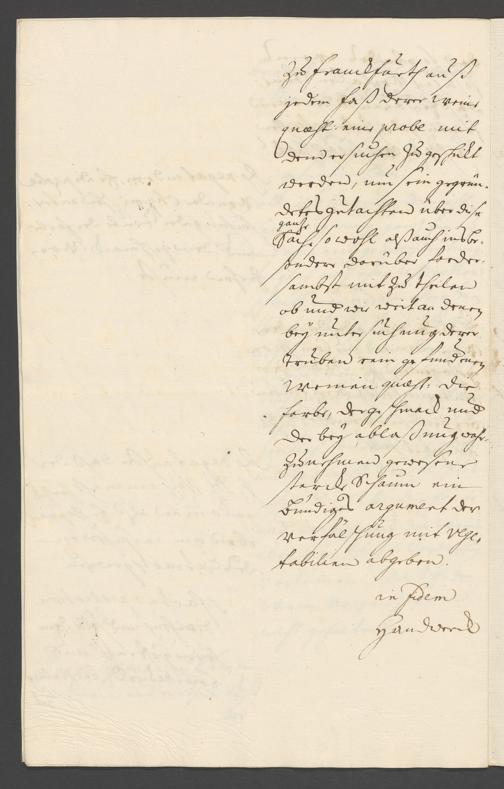 Zu Franckfurth auß
jedem faß derer Weine
quæst: eine probe mit
dem ersuchen Zugeschickt
werden, um sein gegrün-
detes gutachten über diese
gantze
Sache so wohl alß auch insbe-
sondere darüber forder-
sambst mit Zu theilen
ob und wie weit an denen
bey untersuchung derer
trüben rein gefundenen
Weinen quæst: die
farbe, der geschmack und
der bey ablaßung wahr-
Zunehmen gewesene
starcke Schaum ein
bündiges argument der
verfälschung mit vege-
tabilien abgeben.
in fidem
Handwerck